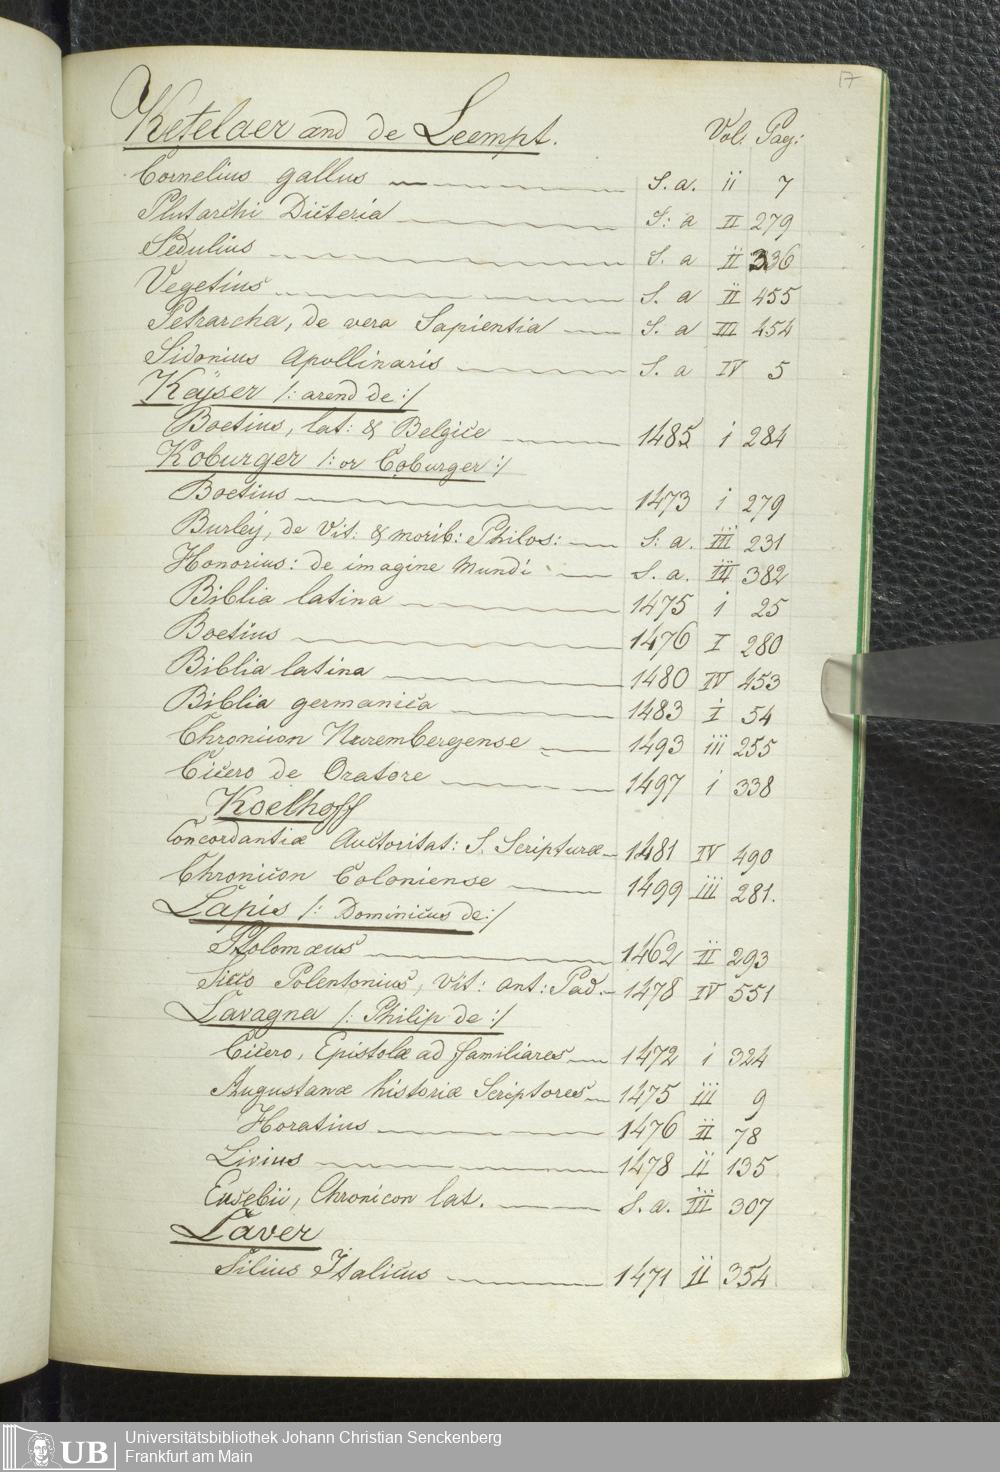 17
Ketelaer and de Leempt. Vol. Pag:
Cornelius gallus S. a. ii 7
Plutarchi Dicteria S: a II 279
Sedulius S. a II 336
Vegetius S. a II 455
Petrarcha, de vera Sapientia S. a III 454
Sidonius Apollinaris S. a IV 5
Kaÿser /: arend de :/
Boetius, lat: & Belgice 1485 i 284
Koburger /: or Coburger :/
Boetius 1473 i 279
Burleÿ, de Vit: & morib: Philos: S: a. III 231
Honorius: de imagine Mundi S. a. III 382
Biblia latina 1475 i 25
Boetius 1476 I 280
Biblia latina 1480 IV 453
Biblia germanica 1483 I 54
Chronicon Nurembergense 1493 iii 255
Cicero de Oratore 1497 i 338
Koelhoff
Concordantiæ Auctoritat: S. Scripturæ 1481 IV 490
Chronicon Coloniense 1499 iii 281.
Lapis /: Dominicus de :/
Ptolomæus 1462 II 293
Sicco Polentonius, vit: ant: Pad. 1478 IV 551
Lavagna /: Philip de :/
Cicero, Epistolæ ad familiares 1472 i 324
Augustanæ historiæ Scriptores 1475 iii 9
Horatius 1476 II 78
Livius 1478 ii 135
Eusebii, Chronicon lat. S. a. III 307
Laver
Silius Italicus 1471 II 354
UB
Universitätsbibliothek Johann Christian Senckenberg
Frankfurt am Main